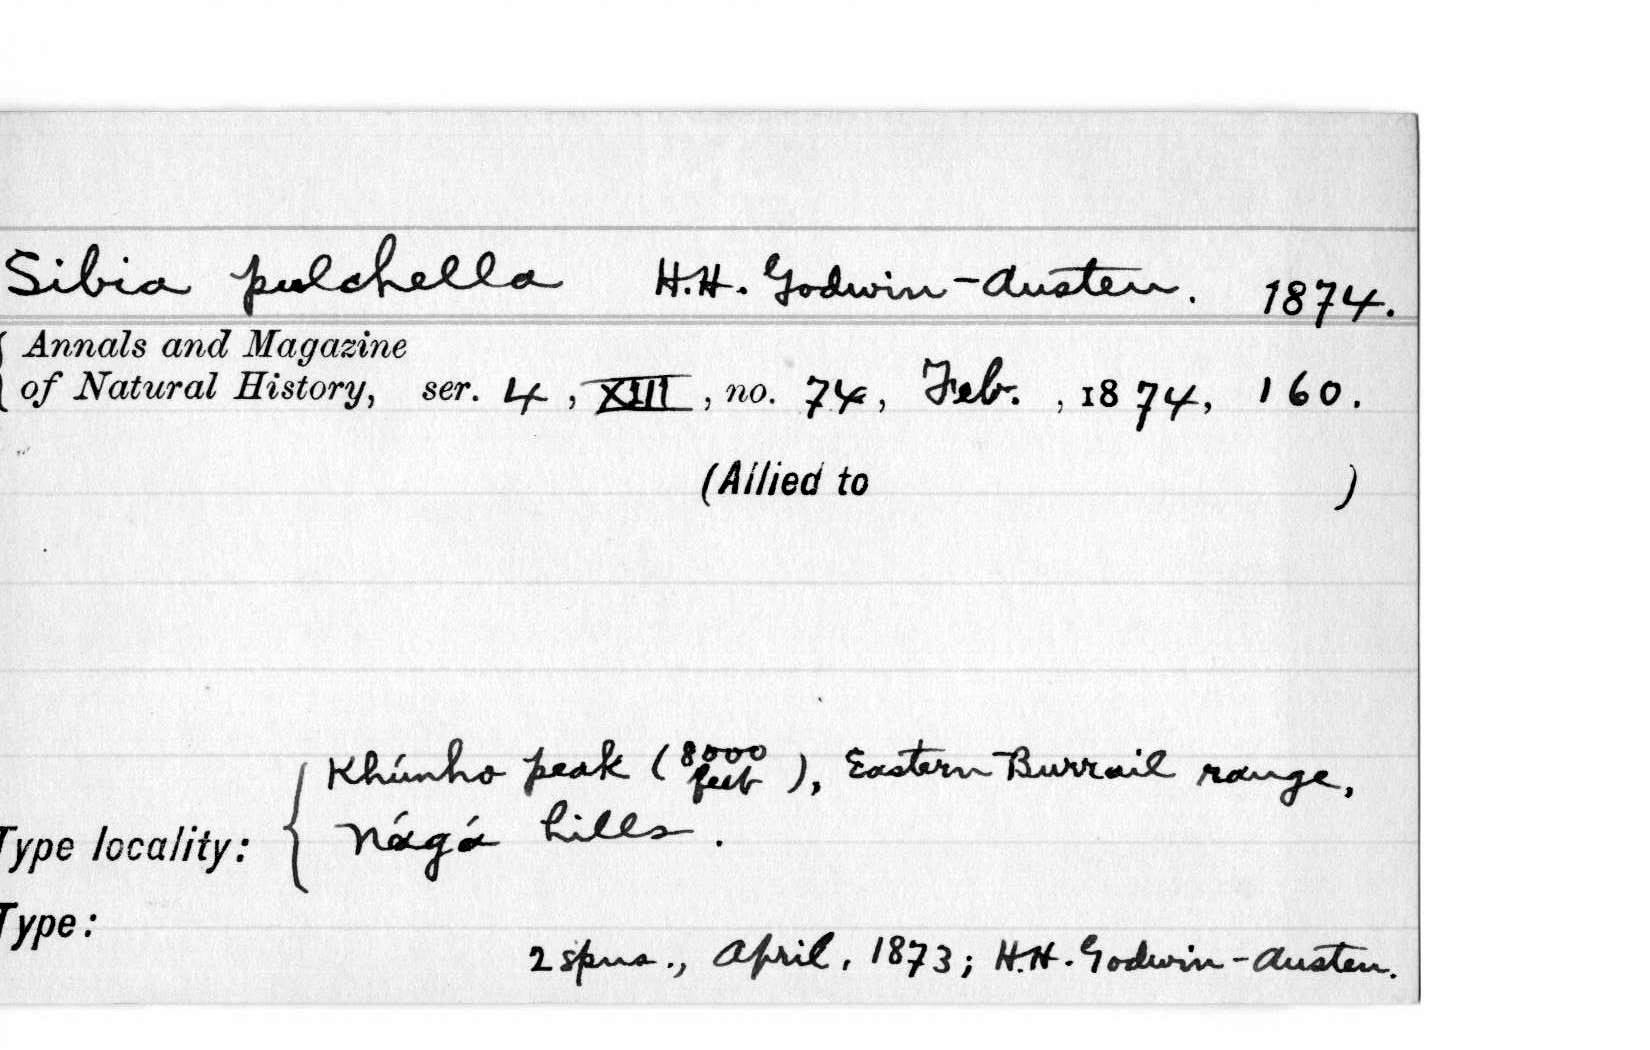 Sibia pulchella H.H. Godwin-Austen. 1874.
Annals and Magazine
of Natural History, ser. 4, XIII, no. 74, Feb. , 1874, 160.
(Allied to )
Khúnho peak (8000 feet), Eastern Burrail range,
Type locality: Nágá hills.
Type:
2 spns., April, 1873; H.H. Godwin-Austen.